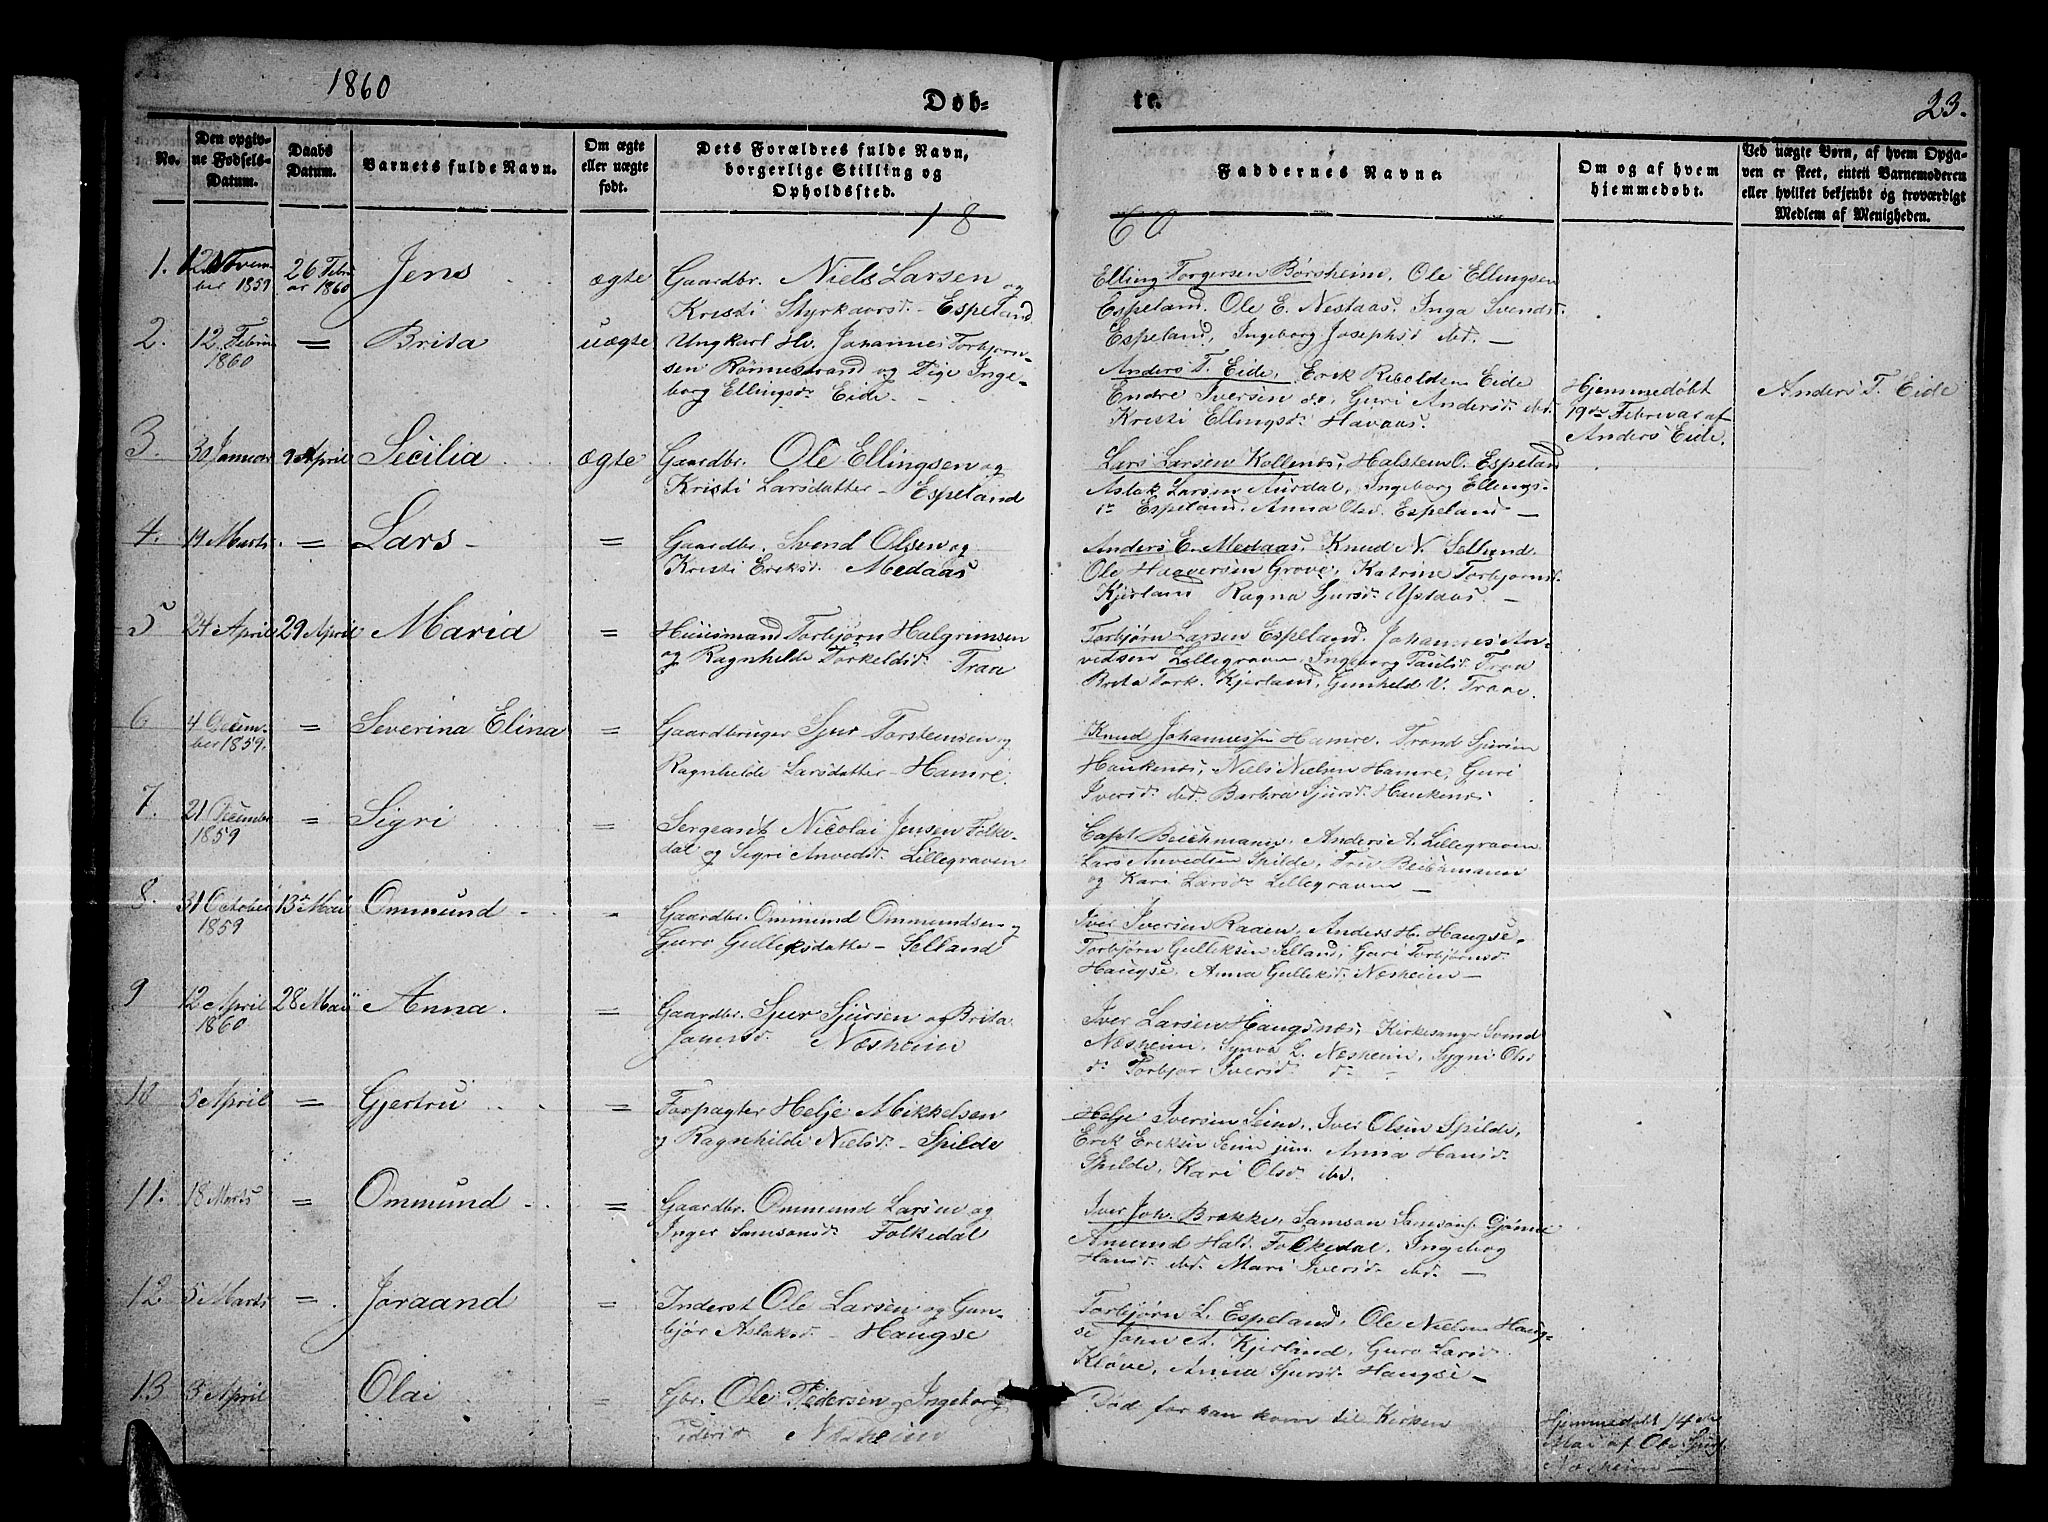 1860
Døb-
te.
23.
No.
Den opgiv-
ne Fødsels-
Datum.
Daabs
Datum.
Barnets fulde Navn.
Om ægte
eller uægte
født.
Dets Forældres fulde Navn,
borgerlige Stilling og
Opholdssted.
Faddernes Navne.
Om og af hvem
hjemmedøbt.
Ved uægte Børn, af hvem Opga-
ven er skeet, enten Barnemoderen
eller hvilket bekjendt og troværdigt
Medlem af Menigheden.
18
60
1. 12 Novem-
ber 1859
26 Febru
ar 1860
Jens
ægte
Gaardbr. Niels Larsen og
Kristi Styrkaarsd. Espeland
Elling Torgersen Børsheim, Ole Ellingsen
Espeland, Ole E. Nestaas, Inga Svendsd.
Espeland, Ingeborg Josephsd. ibd. —
2. 12 Febru
1860
=
Brita
uægte
Ungkarl Hv. Johannes Torbjørn-
sen Rønnestrand og Pige Inge-
borg Ellingsd. Eide -
Anders T. Eide, Erik Eide
Endre Iversen do, Guri Andersd. ibd.
Kristi Ellingsd. Havaas.
Hjemmedøbt
19de Februar af
Anders Eide.
Anders T. Eide
3. 30 Januar
9 April
Secilia
ægte
Gaardbr. Ole Ellingsen og
Kristi Larsdatter - Espeland
Lars Larsen Kollenes, Halsten O. Espeland
Aslak Larsen Aurdal, Ingeborg Ellings-
dr Espeland, Anna Olsd. Espeland —
4. 14 Marts
=
Lars -
=
Gaardbr. Svend Olsen og
Kristi Eriksd. Medaas
Anders E. Medaas, Knud N. Selland
Ole Haaversen Grove, Katrine Torbjørnsd.
Kjerland Ragna Sjursd. Ystaas. —
5 24 April
29 April
Maria
=
Huusmand Torbjørn Halgrimsen
og Ragnhilde Torkeldsd. Traa
Torbjørn Larsen Espeland. Johannes An-
vedsen Lillegraven, Ingeborg Paulsd. Traa
Brita Tork. Kjerland, Gunheld V. Traae.
6 4 Decem-
ber 1859.
=
Severina Elina
=
Gaardbruger Sjur Torsteinsen og
Ragnhilde Larsdatter - Hamre.
Knud Johannessen Hamre. Trond Sjursen
Haukenes, Niels Nielsen Hamre, Guri
Iversd. ibd. Barbra Sjursd. Haukenes
7. 21 Decembr
1859
=
Sigri
=
Sergeant Nicolai Jensen Folke-
dal og Sigri Anvedsd. Lillegraven
Capt. Beichmann, Anders A. Lillegraven
Lars Anvedsen Spilde, Fru Beichmann
og Kari Larsd. Lillegraven —
8. 31 October
1859
13de Mai
Ommund -
=
Gaardbr. Ommund Ommundsen og
Guro Gulleksdatter - Selland
Iver Iversen Raaen, Anders H. Haugse,
Torbjørn Gulleksen Selland, Guri Torbjørnsd.
Haugse, Anna Gulleksd. Næsheim —
9 12 April
1860
28 Mai
Anna.
=
Gaardbr. Sjur Sjursen og Brita
Næsheim
Iver Larsen Haugsnæs, Kirkesanger Svend
Næsheim, Synva L. Næsheim, Sygni Olsd
do Torbjør Iversd. do -
10 5 April
=
Gjertru
=
Forpagter Helje Mikkelsen
og Ragnhilde Nielsd. - Spilde
Helje Iversen Seim, Iver Olsen Spilde,
Erik Eriksen Seim jun. Anna Hansd.
Spilde, Kari Olsd. ibd.
11. 18 Marts
=
Ommund -
=
Gaardbr. Ommund Larsen og
Inger Samsonsd. Folkedal
Iver Joh. Brække, Samson Samsons. Djønne
Amund Hald. Folkedal, Ingeborg
Hansd. ibd. Mari Iversd. ibd. —
12 5 Marts
=
Joraand
=
Inderst Ole Larsen og Gun-
bjør Aslaksd. - Haugse
Torbjørn L. Espeland, Ole Nielsen Haug-
se John A. Kjerland, Guro Larsd.
Kløve, Anna Sjursd. Haugse —
13 3 April
Olai
=
Gbr. Ole Pedersen og Ingeborg
Pedersd. Næsheim
Død før han kom til Kirken
Hjemmedøbt 14de
Mai af Ole Sjurs.
Næsheim —